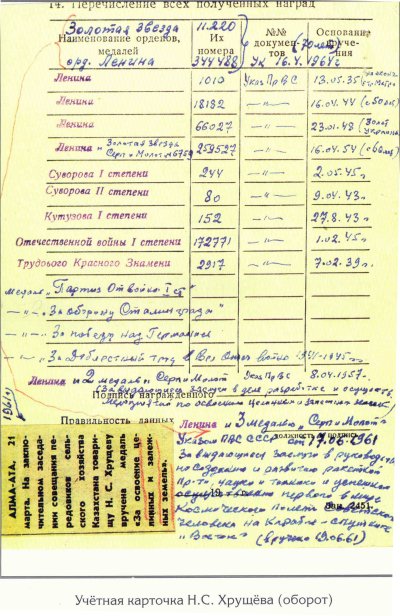 14. Перечисление всех полученных наград
Золотая Звезда 11.220
Наименование орденов, медалей Их номера №№ документов Основание вручения
(70 лет)
орд. Ленина 344488 Ук 16.4.1964 г.
Ленина 1010 Указ ПрВС 13.05.35
Ленина 18182 —"— 16.04.44 (50 лет)
Ленина 66027 —"— 23.01.48
Ленина и Золотая Звезда Серп и Молот №6759 259527 —"— 16.04.54 (60 лет)
Суворова I степени 244 —"— 2.05.45 г.
Суворова II степени 80 —"— 9.04.43 г.
Кутузова I степени 152 —"— 27.8.43 г.
Отечественной войны I степени 172771 —"— 1.02.45 г.
Трудового Красного Знамени 2917 —"— 7.02.39 г.
Медаль „Партиз От войны I ст"
—"— За оборону Сталинграда
—"— За победу над Германией
—"— За Доблестный труд в Вел Отеч войне 1941-1945
Ленина и 2 медаль Серп и Молот Указ ПрВС 8.04.1957 г.
(За выдающиеся заслуги в деле разработки и осуществ.
Подпись награжденного
мероприятий по освоению целинных и залежных земель)
1961 г
Правильность данных
Ленина и 3 медаль „Серп и Молот"
Указом ПВС СССР 17.06.1961
За выдающиеся заслуги в руководстве
по созданию и развитию ракетной
пр-ти, науки и техники и успешном
осуществлении первого в мире
космического полета советского
человека на корабле-спутнике
„Восток" (вручено 19.06.61)
АЛМА-АТА, 21
марта. На заключительном заседании совещания передовиков сельского хозяйства Казахстана товарищу Н. С. Хрущеву вручена медаль «За освоение целинных и залежных земель».
Учётная карточка Н.С. Хрущёва (оборот)